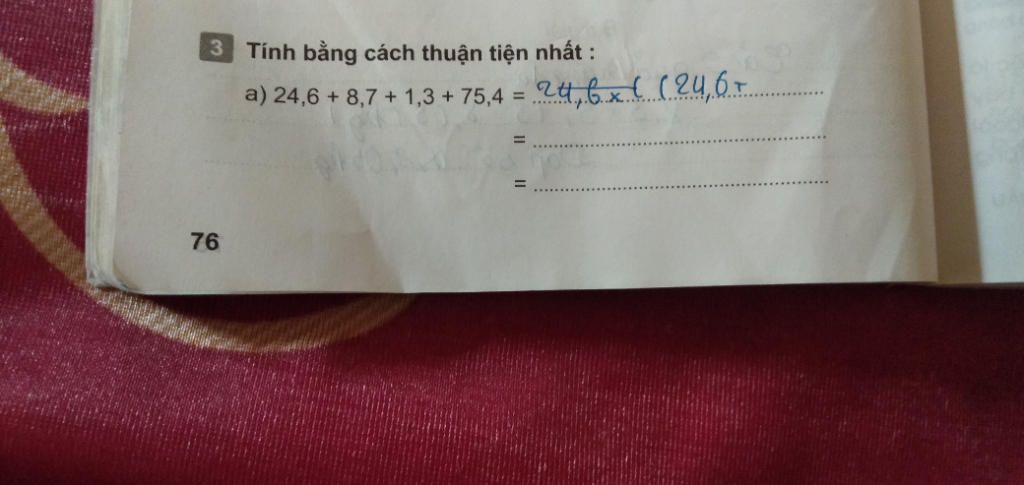 3 Tính bằng cách thuận tiện nhất :
a) 24,6 + 8,7 + 1,3 + 75,4 = 24,6 x ( (24,6 +
=
=
76